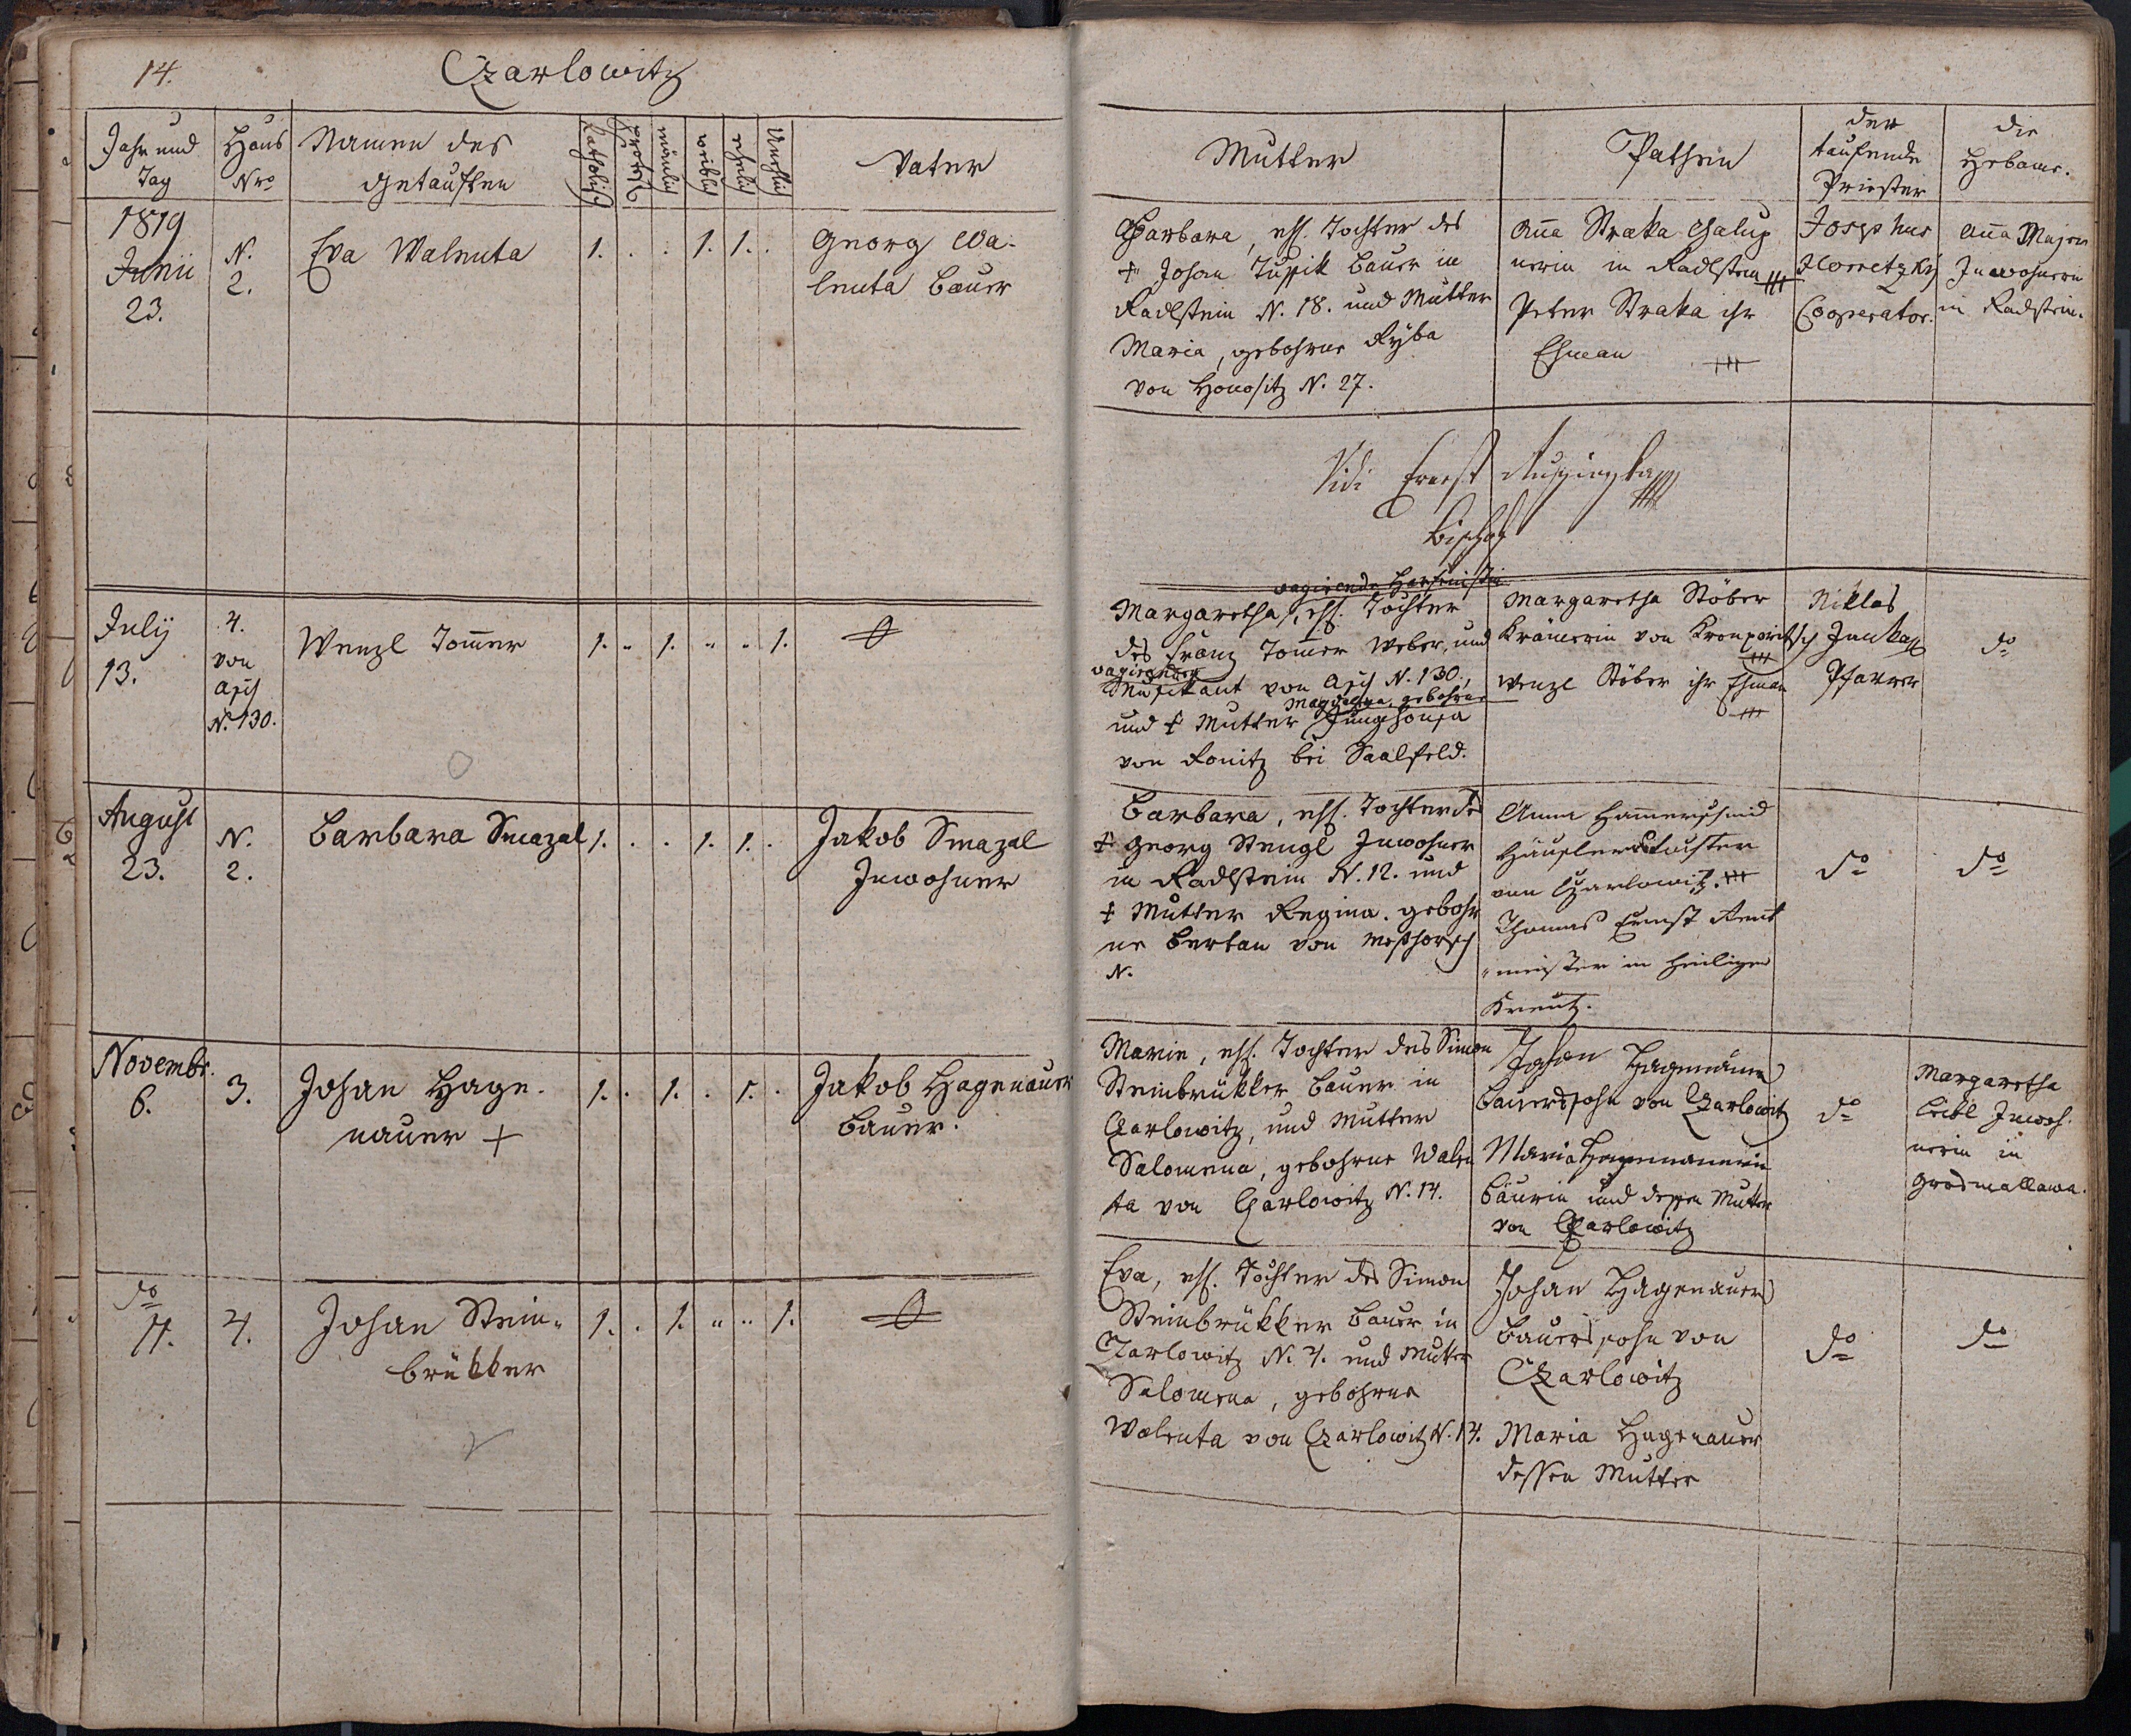 14.
Czarlowitz
Jahr und Tag
Haus Nro
Namen des getauften
Katholisch
männlich
weibl.
ehelich
Unehlich
Vater
Mutter
Pathen
der taufende Priester
die Hebame.
1819
Junii
23.
N.
2.
Eva Walenta
1. . . 1. 1. .
Georg Wa-
lenta Bauer
Barbara, ehl. Tochter des
† Johan Tuppik Bauer in
Radlstein N. 18. und Mutter
Maria, gebohrne Ryba
von Honositz N. 27.
Aña Straka Chalup
nerin in Radlstein +++
Peter Straka ihr
Ehman +++
Josephus
Horretzky
Cooperator.
Aña Majer
Inwohnerin
in Radstein.
Vidi Ernest Ružiczka
Bischof
July
13.
4.
von
Asch
N. 130.
Wenzl Tom̃er
1. " 1. " " 1.
vagirende Harfenistin
Margaretha, ehl. Tochter
des Franz Tom̃er Weber, und
vagirender
Musikant von Asch N. 130.,
Magdalena, gebohrne
und † Mutter Junghonsa
von Konitz bei Saalfeld.
Margaretha Stöber
Krämerin von Kronporitsch
+++
Wenzl Stöber ihr Ehman
+++
Niklas
Pfarrer
do
August
23.
N.
2.
Barbara Smazal
1. . . 1. 1. .
Jakob Smazal
Inwohner
Barbara, ehl. Tochter des
† Georg Stengl Inwohner
in Radlstein N. 12. und
† Mutter Regina. gebohr
ne Bertan von
N.
Anna Ham̃erschmid
Häusler Tochter
von Czarlowitz. +++
Thomas Ernst Rent
"meister in Heiligen
Kreutz.
do
do
Novembr.
6.
3.
Johan Hage-
nauer +
1. . 1. . 1. .
Jakob Hagenauer
Bauer.
Marie, ehl. Tochter des Simon
Steinbrükker Bauer in
Czarlowitz, und Mutter
Salomena, gebohrne Walen
ta von Czarlowitz N. 14.
Johan Hagenauer
Bauerssohn von Czarlowitz
Maria Hagenauerin
Bäurin und dessen Mutter
von Czarlowitz
do
Margaretha
Leibl Inwoh-
nerin in
Grosmallowa.
do
11.
4.
Johan Stein-
brükker
1. . 1. " " 1.
Eva, ehl. Tochter des Simon
Steinbrükker Bauer in
Czarlowitz N. 4. und Mutter
Salomena, gebohrne
Walenta von Czarlowitz N. 14.
Johan Hagenauer
Bauerssohn von
Czarlowitz
Maria Hagenauer
dessen Mutter
do
do